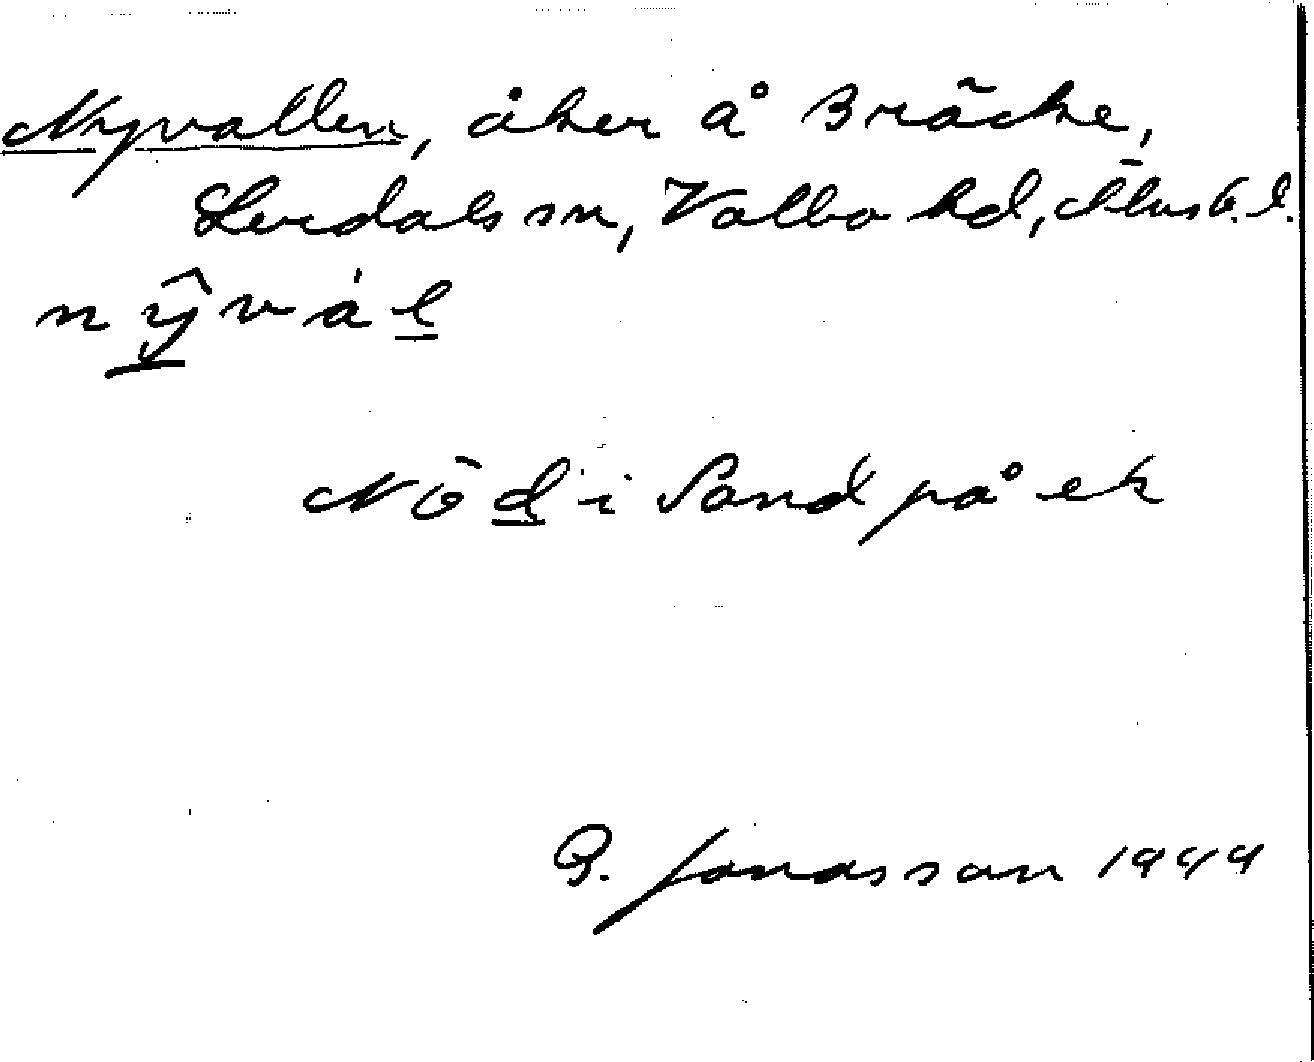 Nyvallen, åker å Bräcke,
Lerdals sn, Valbo hd, Älvsb. l.
nŷvál
Nödi Sand på ek
B. Jonasson 1944